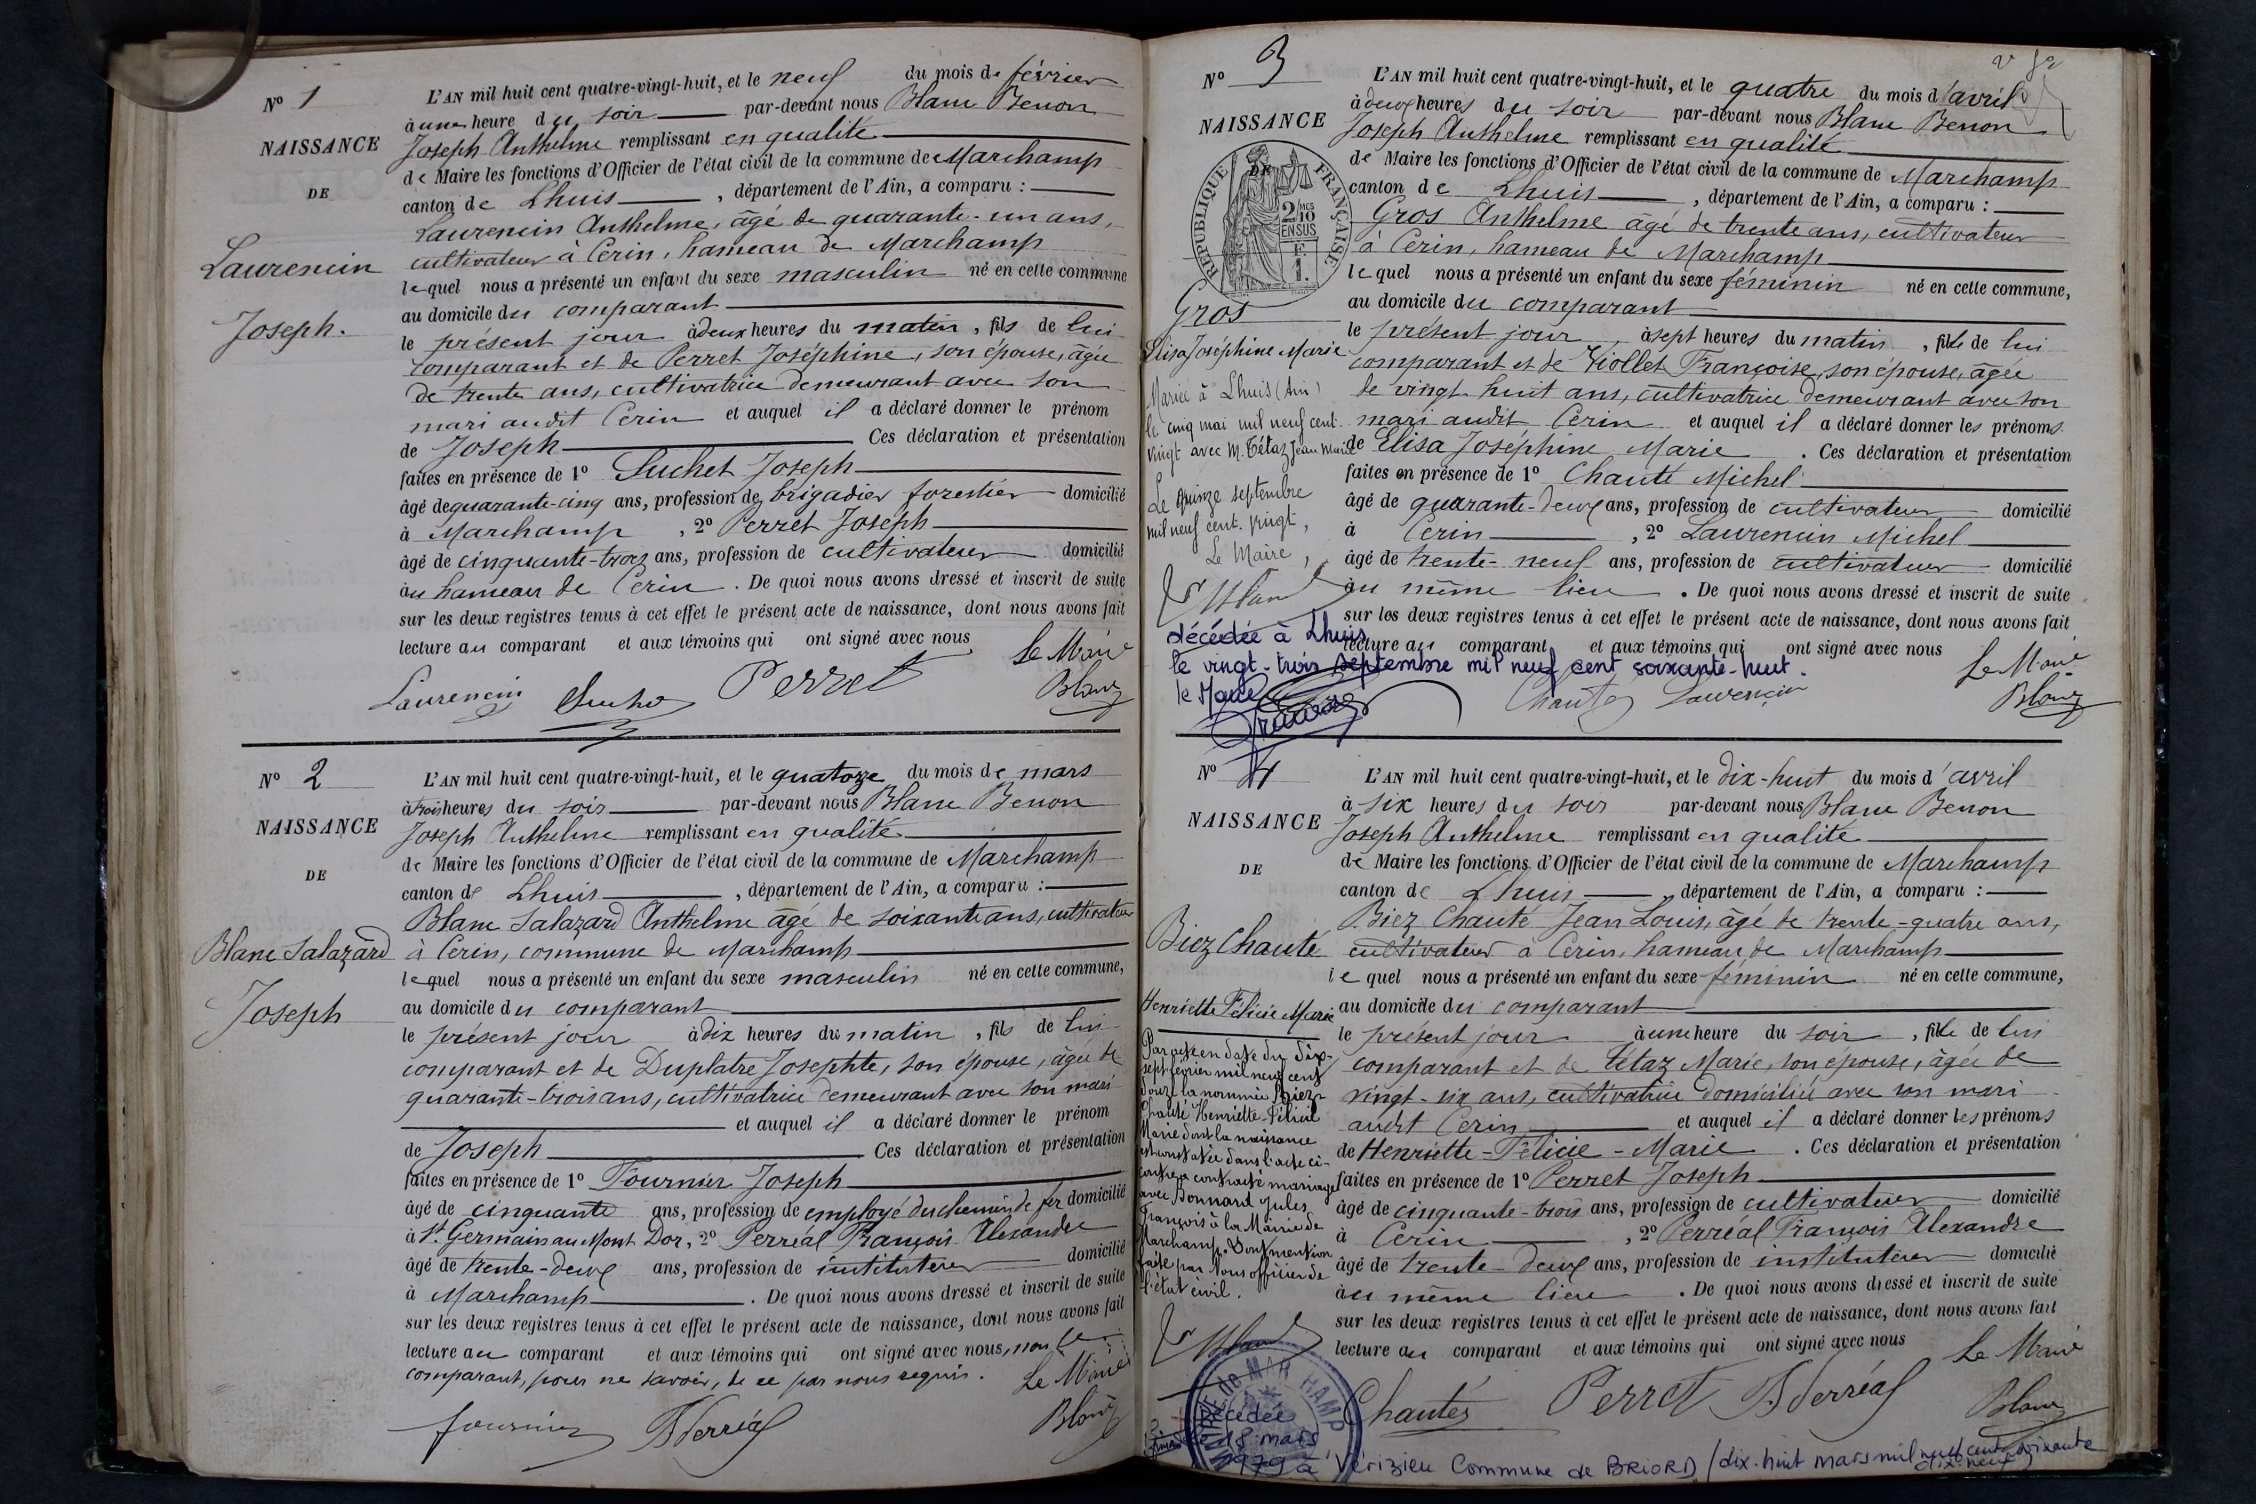 N° 1
NAISSANCE
DE
Laurencin
Joseph.
L'AN mil huit cent quatre-vingt-huit, et le neuf du mois de février
à une heure du soir par-devant nous Blanc Benon
Joseph Anthelme remplissant en qualité
de Maire les fonctions d'Officier de l'état civil de la commune de Marchamp
canton de Lhuis, département de l'Ain, a comparu :
Laurencin Anthelme, âgé de quarante-un ans,
cultivateur à Cerin, hameau de Marchamp
lequel nous a présenté un enfant du sexe masculin né en cette commune
au domicile du comparant
le présent jour à deux heures du matin, fils de lui
comparant et de Perret Joséphine, son épouse, âgée
de trente ans, cultivatrice demeurant avec son
mari audit Cerin et auquel il a déclaré donner le prénom
de Joseph Ces déclaration et présentation
faites en présence de 1° Suchet Joseph
âgé de quarante-cinq ans, profession de brigadier forestier domicilié
à Marchamp, 2° Perret Joseph
âgé de cinquante-trois ans, profession de cultivateur domicilié
au hameau de Cerin. De quoi nous avons dressé et inscrit de suite
sur les deux registres tenus à cet effet le présent acte de naissance, dont nous avons fait
lecture au comparant et aux témoins qui ont signé avec nous
Le Maire
Laurencin Perret Blanc
N° 2
NAISSANCE
DE
Blanc Salazard
Joseph
L'AN mil huit cent quatre-vingt-huit, et le quatorze du mois de mars
à trois heures du soir par-devant nous Blanc Benon
Joseph Anthelme remplissant en qualité
de Maire les fonctions d'Officier de l'état civil de la commune de Marchamp
canton de Lhuis, département de l'Ain, a comparu :
Blanc Salazard Anthelme âgé de soixante ans, cultivateur
à Cerin, commune de Marchamp
lequel nous a présenté un enfant du sexe masculin né en cette commune,
au domicile du comparant
le présent jour à dix heures du matin, fils de lui
comparant et de Duplatre Josephte, son épouse, âgée de
quarante-trois ans, cultivatrice demeurant avec son mari
et auquel il a déclaré donner le prénom
de Joseph Ces déclaration et présentation
faites en présence de 1° Fournier Joseph
âgé de cinquante ans, profession de employé du chemin de fer domicilié
à St. Germain au Mont Dor, 2° Perréal François Alexandre
âgé de trente-deux ans, profession de instituteur domicilié
à Marchamp. De quoi nous avons dressé et inscrit de suite
sur les deux registres tenus à cet effet le présent acte de naissance, dont nous avons fait
lecture au comparant et aux témoins qui ont signé avec nous, non le
comparant, pour ne savoir, de ce par nous requis. Le Maire
Fournier Perréal Blanc
N° 3
NAISSANCE
RÉPUBLIQUE FRANÇAISE
2/10 MES
EN SUS
F.
1.
Gros
Elisa Joséphine Marie
Mariée à Lhuis (Ain)
le cinq mai mil neuf cent
vingt avec M. Tétaz Jean Marie
Le quinze septembre
mil neuf cent vingt,
Le Maire,
Blanc
décédée à Lhuis
le vingt-trois septembre mil neuf cent soixante-huit.
le Maire
L'AN mil huit cent quatre-vingt-huit, et le quatre du mois d'avril
à deux heures du soir par-devant nous Blanc Benon
Joseph Anthelme remplissant en qualité
de Maire les fonctions d'Officier de l'état civil de la commune de Marchamp
canton de Lhuis, département de l'Ain, a comparu :
Gros Anthelme âgé de trente ans, cultivateur
à Cerin, hameau de Marchamp
lequel nous a présenté un enfant du sexe féminin né en cette commune,
au domicile du comparant
le présent jour à sept heures du matin, fille de lui
comparant et de Viollet Françoise, son épouse, âgée
de vingt-huit ans, cultivatrice demeurant avec son
mari audit Cerin et auquel il a déclaré donner les prénoms
de Elisa Joséphine Marie. Ces déclaration et présentation
faites en présence de 1° Chanté Michel
âgé de quarante-deux ans, profession de cultivateur domicilié
à Cerin, 2° Laurencin Michel
âgé de trente-neuf ans, profession de cultivateur domicilié
au même lieu. De quoi nous avons dressé et inscrit de suite
sur les deux registres tenus à cet effet le présent acte de naissance, dont nous avons fait
lecture au comparant et aux témoins qui ont signé avec nous
Le Maire
Laurencin Blanc
N° 4
NAISSANCE
DE
Biez Chanté
Henriette Félicie Marie
Par acte en date du dix-
sept février mil neuf cent
douze la nommée Biez
Chanté Henriette-Félicie
Marie dont la naissance
est constatée dans l'acte ci-
contre a contracté mariage
avec Bonnard Jules
François à la Mairie de
Marchamp. Dont mention
faite par nous officier de
l'état civil.
Blanc
MAIRIE de MARCHAMP
Décédée
le 18 mars
1979 à Vérizieu Commune de BRIORD (dix-huit mars mil neuf cent soixante
dix-neuf)
L'AN mil huit cent quatre-vingt-huit, et le dix-huit du mois d'avril
à six heures du soir par-devant nous Blanc Benon
Joseph Anthelme remplissant en qualité
de Maire les fonctions d'Officier de l'état civil de la commune de Marchamp
canton de Lhuis, département de l'Ain, a comparu :
Biez Chanté Jean Louis, âgé de trente-quatre ans,
cultivateur à Cerin, hameau de Marchamp
lequel nous a présenté un enfant du sexe féminin né en cette commune,
au domicile du comparant
le présent jour à une heure du soir, fille de lui
comparant et de Tétaz Marie, son épouse, âgée de
vingt-six ans, cultivatrice domiciliée avec son mari
audit Cerin et auquel il a déclaré donner les prénoms
de Henriette-Félicie-Marie. Ces déclaration et présentation
faites en présence de 1° Perret Joseph
âgé de cinquante-trois ans, profession de cultivateur domicilié
à Cerin, 2° Perréal François Alexandre
âgé de trente-deux ans, profession de instituteur domicilié
au même lieu. De quoi nous avons dressé et inscrit de suite
sur les deux registres tenus à cet effet le présent acte de naissance, dont nous avons fait
lecture au comparant et aux témoins qui ont signé avec nous
Le Maire
Chanté Perret Perréal Blanc